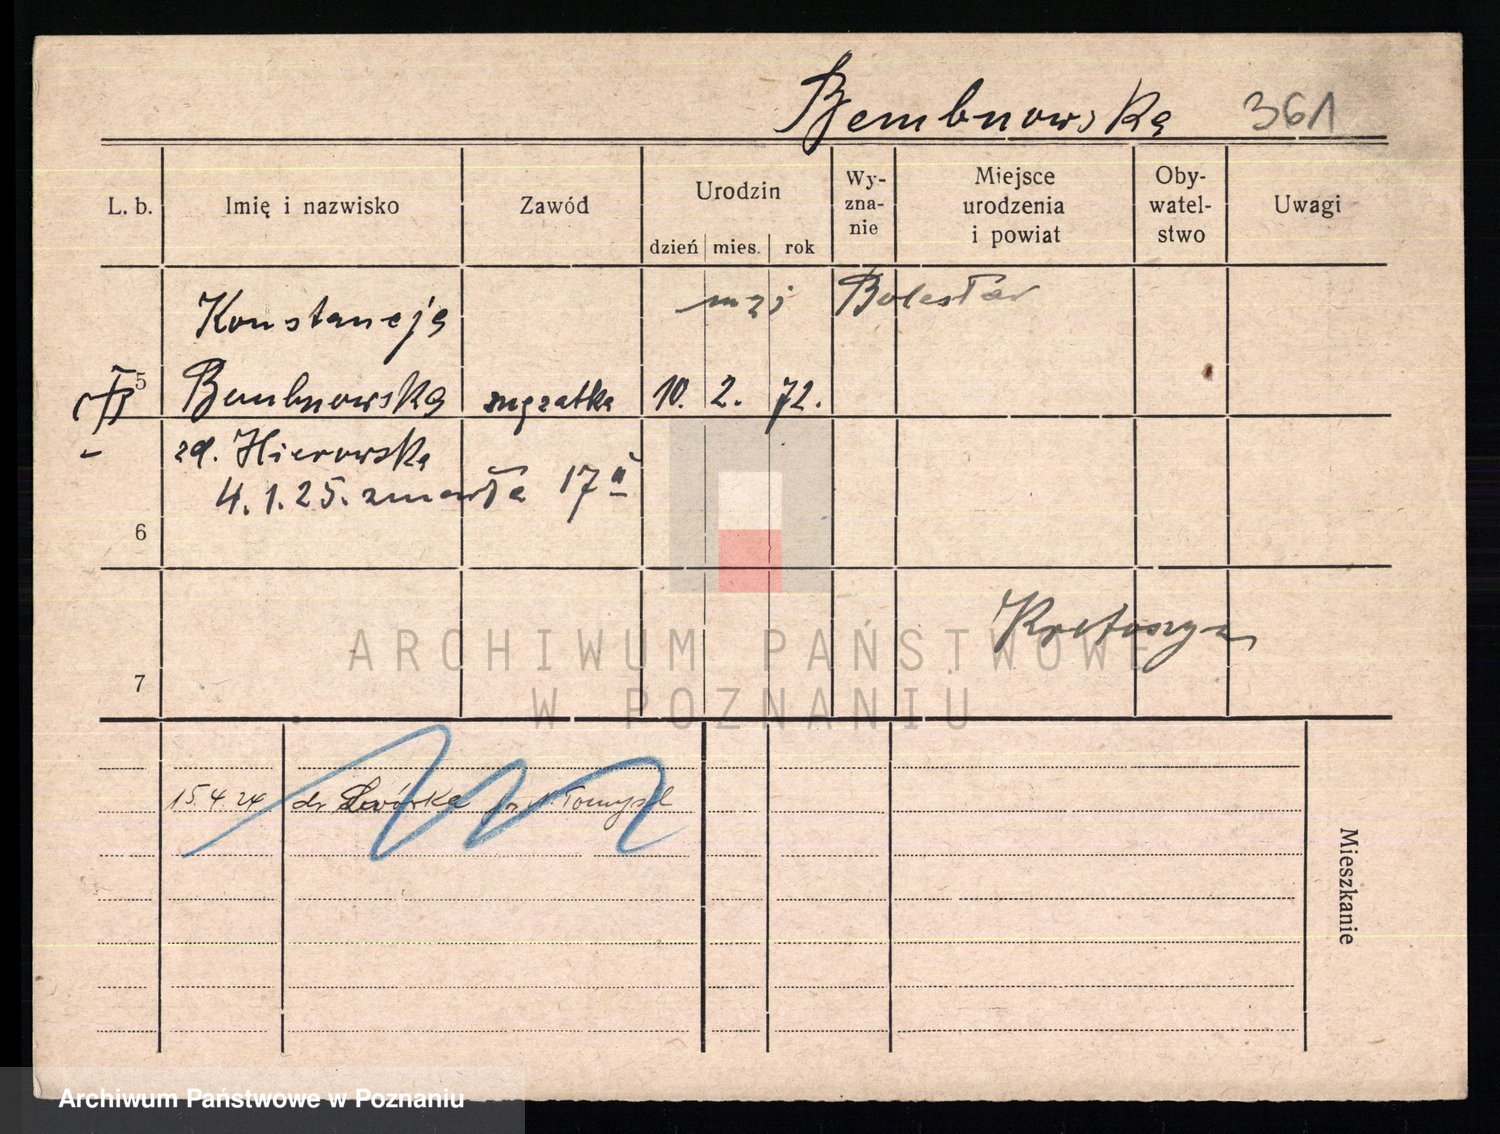 Bembnowska 361
L. b. Imię i nazwisko Zawód Urodzin dzień mies. rok Wy-zna-nie Miejsce urodzenia i powiat Oby-watel-stwo Uwagi
Konstancja mąż Bolesław
5 Bembnowska mężatka 10. 2. 72.
zd. Hierowska
4. 1. 25. zmarła 17
6
Krotoszyn
7
ARCHIWUM PAŃSTWOWE
W POZNANIU
15.4.24 do Lwówka N. Tomyśl
Mieszkanie
Archiwum Państwowe w Poznaniu